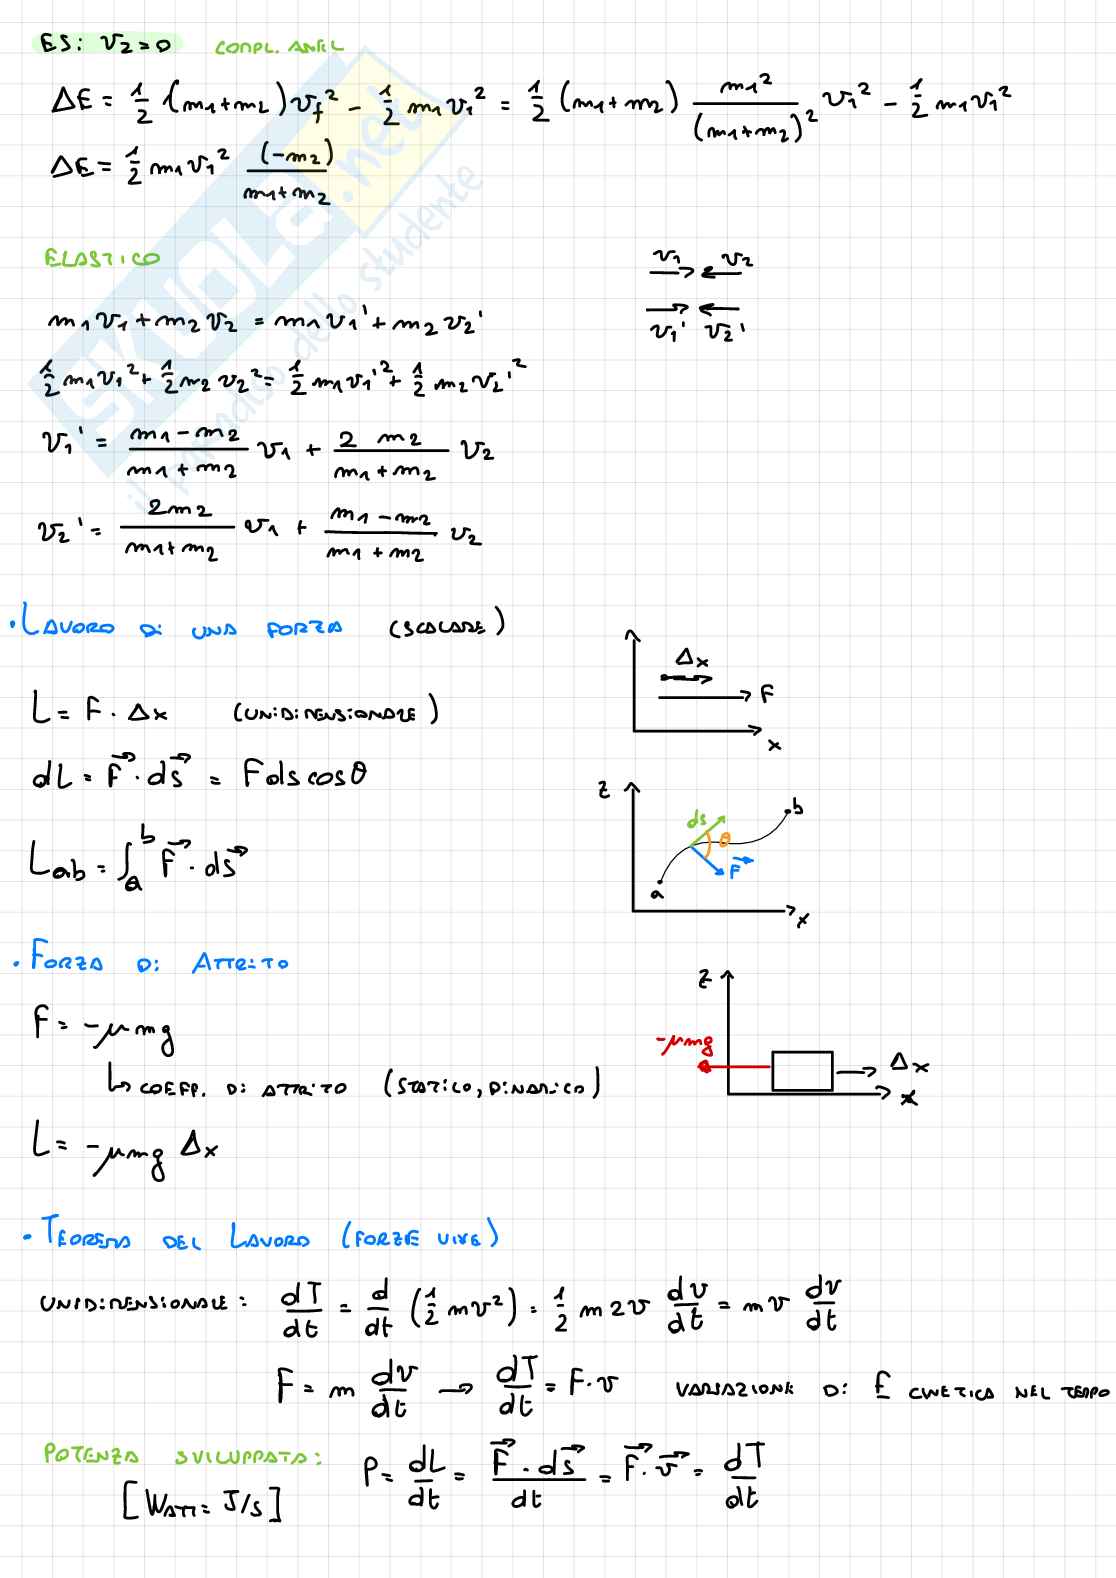 ES: v₂=0 COMPL. ANEL
ΔE = 1/2 (m₁+m₂) v_f² - 1/2 m₁v₁² = 1/2 (m₁+m₂) m₁²/(m₁+m₂)² v₁² - 1/2 m₁v₁²
ΔE = 1/2 m₁v₁² (-m₂)/(m₁+m₂)
ELASTICO
v₁ v₂
m₁v₁ + m₂v₂ = m₁v₁' + m₂v₂'
v₁' v₂'
1/2 m₁v₁² + 1/2 m₂v₂² = 1/2 m₁v₁'² + 1/2 m₂v₂'²
v₁' = (m₁-m₂)/(m₁+m₂) v₁ + 2 m₂/(m₁+m₂) v₂
v₂' = 2m₂/(m₁+m₂) v₁ + (m₁-m₂)/(m₁+m₂) v₂
SKUOLA.net
il paradiso dello studente
· LAVORO DI UNA FORZA (SCALARE)
Δx
F
x
L = F · Δx (UNIDIMENSIONALE)
dL = F⃗ · ds⃗ = F ds cos θ
z
b
ds
θ
F⃗
a
x
L_ab = ∫_a^b F⃗ · ds⃗
· FORZA DI ATTRITO
z
-μmg
Δx
x
F = -μmg
↳ COEFF. DI ATTRITO (STATICO, DINAMICO)
L = -μmg Δx
· TEOREMA DEL LAVORO (FORZE VIVE)
UNIDIMENSIONALE: dT/dt = d/dt (1/2 mv²) = 1/2 m 2v dv/dt = m v dv/dt
F = m dv/dt → dT/dt = F · v VARIAZIONE DI E CINETICA NEL TEMPO
POTENZA SVILUPPATA: P = dL/dt = F⃗ · ds⃗/dt = F⃗ · v⃗ = dT/dt
[WATT = J/s]